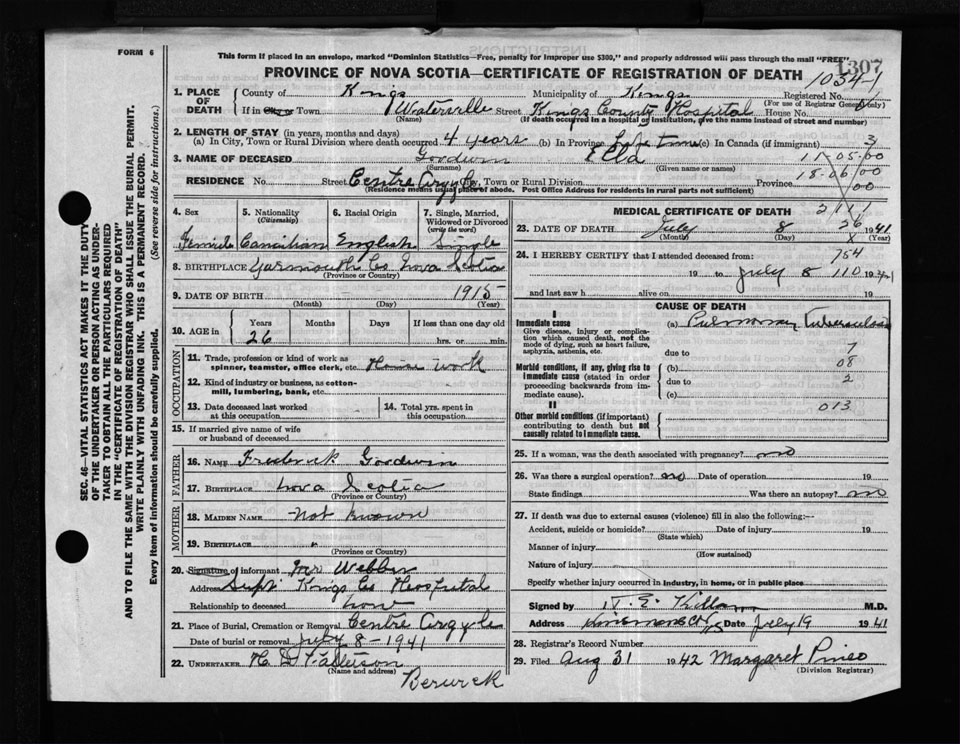 FORM 6
This form if placed in an envelope, marked "Dominion Statistics—Free, penalty for improper use $300," and properly addressed will pass through the mail "FREE"
1307
PROVINCE OF NOVA SCOTIA—CERTIFICATE OF REGISTRATION OF DEATH
10341
1. PLACE OF DEATH
County of Kings Municipality of Kings Registered No.
(For use of Registrar General only)
If in City or Town Waterville Street Kings County Hospital House No.
(Name) (If death occurred in a hospital or institution, give the name instead of street and number)
2. LENGTH OF STAY (in years, months and days)
(a) In City, Town or Rural Division where death occurred 4 years (b) In Province Life time (c) In Canada (if immigrant) 3
3. NAME OF DECEASED Goodwin Ella 11-05-00
(Surname) (Given name or names)
RESIDENCE No. Street Centre Argyle City, Town or Rural Division Province 18-06/00
(Residence means usual place of abode. Post Office Address for residents in rural parts not sufficient) 00
4. Sex Female
5. Nationality (Citizenship) Canadian
6. Racial Origin English
7. Single, Married, Widowed or Divorced (write the word) Single
8. BIRTHPLACE Yarmouth Co Nova Scotia
(Province or Country)
9. DATE OF BIRTH 1915
(Month) (Day) (Year)
10. AGE in Years Months Days If less than one day old
26 hrs. or min.
OCCUPATION
11. Trade, profession or kind of work as spinner, teamster, office clerk, etc. House work
12. Kind of industry or business, as cotton-mill, lumbering, bank, etc.
13. Date deceased last worked at this occupation
14. Total yrs. spent in this occupation
15. If married give name of wife or husband of deceased
FATHER
16. NAME Frederick Goodwin
17. BIRTHPLACE Nova Scotia
(Province or Country)
MOTHER
18. MAIDEN NAME Not known
19. BIRTHPLACE "
(Province or Country)
20. Signature of informant Mr Webber
Address Supt Kings Co Hospital
Relationship to deceased none
21. Place of Burial, Cremation or Removal Centre Argyle
Date of burial or removal July 8-1941
22. UNDERTAKER
(Name and address)
Berwick
MEDICAL CERTIFICATE OF DEATH 2111
26
23. DATE OF DEATH July 8 1941
(Month) (Day) (Year)
24. I HEREBY CERTIFY that I attended deceased from: 754
19 to July 8 110 1941
and last saw h alive on 19
CAUSE OF DEATH
I
Immediate cause
Give disease, injury or complication which caused death, not the mode of dying, such as heart failure, asphyxia, asthenia, etc.
(a) Pulmonary Tuberculosis
due to 7
Morbid conditions, if any, giving rise to immediate cause (stated in order proceeding backwards from immediate cause).
(b) 08
due to 2
(c)
II
Other morbid conditions (if important) contributing to death but not causally related to immediate cause.
013
25. If a woman, was the death associated with pregnancy? no
26. Was there a surgical operation? no Date of operation 19
State findings Was there an autopsy? no
27. If death was due to external causes (violence) fill in also the following:—
Accident, suicide or homicide? Date of injury 19
(State which)
Manner of injury
(How sustained)
Nature of injury
Specify whether injury occurred in industry, in home, or in public place
Signed by T. E. Killam M.D.
Address Date July 19 1941
28. Registrar's Record Number
29. Filed Aug 31 1942 Margaret Pineo
(Division Registrar)
SEC. 46—VITAL STATISTICS ACT MAKES IT THE DUTY
OF THE UNDERTAKER OR PERSON ACTING AS UNDER-
TAKER TO OBTAIN ALL THE PARTICULARS REQUIRED
IN THE "CERTIFICATE OF REGISTRATION OF DEATH"
AND TO FILE THE SAME WITH THE DIVISION REGISTRAR WHO SHALL ISSUE THE BURIAL PERMIT.
WRITE PLAINLY WITH UNFADING INK. THIS IS A PERMANENT RECORD.
Every item of information should be carefully supplied. (See reverse side for instructions.)